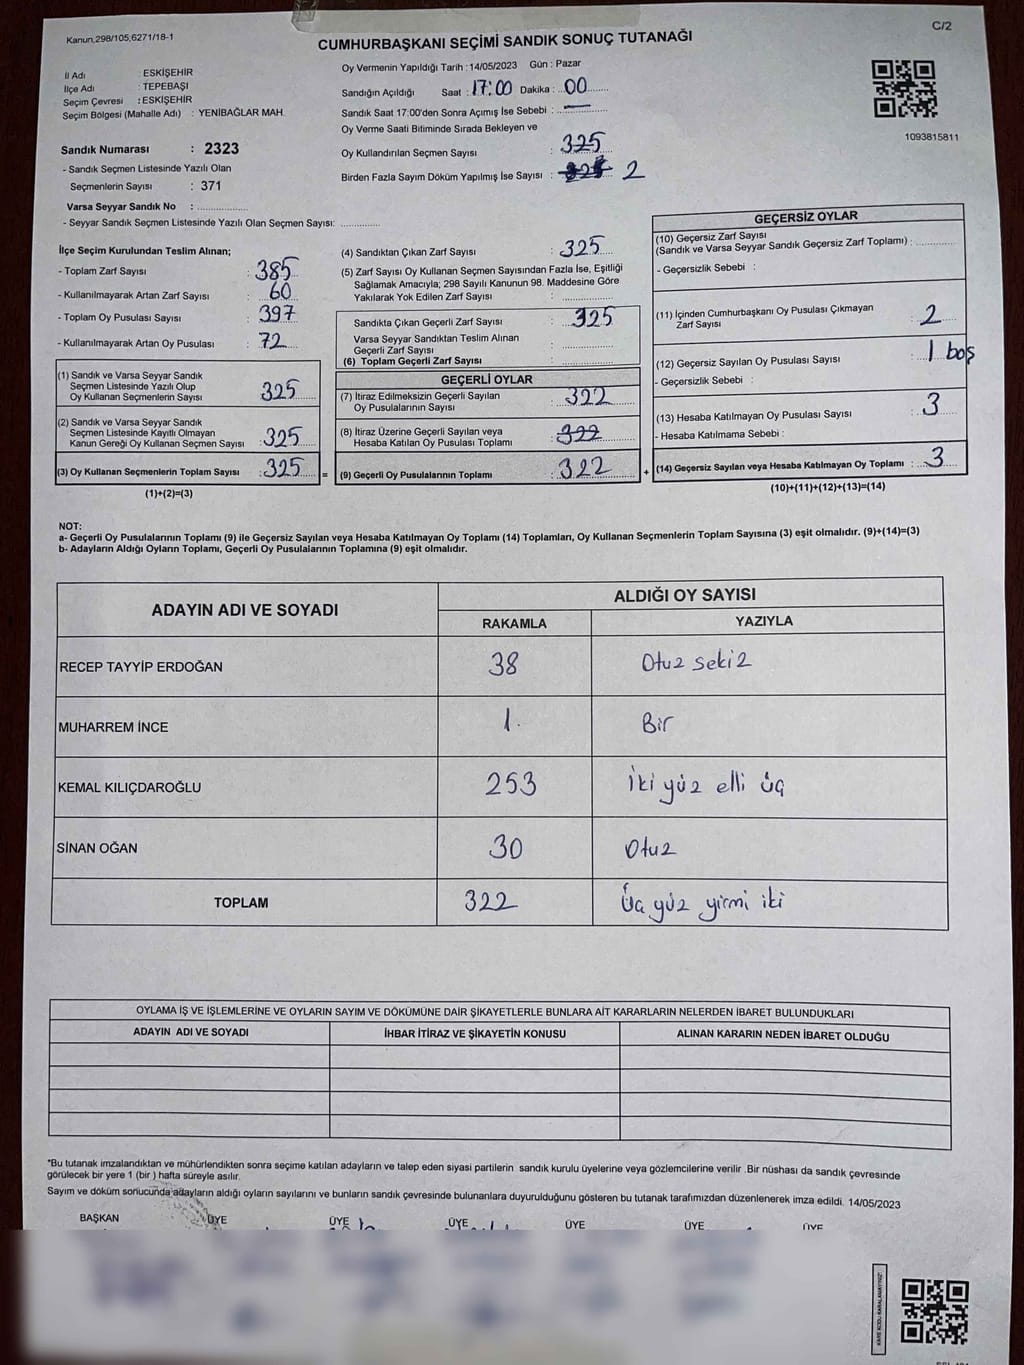 Kanun,298/105,6271/18-1
C/2
CUMHURBAŞKANI SEÇİMİ SANDIK SONUÇ TUTANAĞI
İl Adı : ESKİŞEHİR
İlçe Adı : TEPEBAŞI
Seçim Çevresi : ESKİŞEHİR
Seçim Bölgesi (Mahalle Adı) : YENİBAĞLAR MAH.
Sandık Numarası : 2323
- Sandık Seçmen Listesinde Yazılı Olan
Seçmenlerin Sayısı : 371
Varsa Seyyar Sandık No :
- Seyyar Sandık Seçmen Listesinde Yazılı Olan Seçmen Sayısı:
Oy Vermenin Yapıldığı Tarih :14/05/2023 Gün : Pazar
Sandığın Açıldığı Saat : 17:00 Dakika : 00
Sandık Saat 17:00'den Sonra Açımış İse Sebebi : —
Oy Verme Saati Bitiminde Sırada Bekleyen ve
Oy Kullandırılan Seçmen Sayısı : 325
Birden Fazla Sayım Döküm Yapılmış İse Sayısı : 2
1093815811
İlçe Seçim Kurulundan Teslim Alınan;
- Toplam Zarf Sayısı : 385
- Kullanılmayarak Artan Zarf Sayısı : 60
- Toplam Oy Pusulası Sayısı : 397
- Kullanılmayarak Artan Oy Pusulası : 72
(1) Sandık ve Varsa Seyyar Sandık
Seçmen Listesinde Yazılı Olup
Oy Kullanan Seçmenlerin Sayısı 325
(2) Sandık ve Varsa Seyyar Sandık
Seçmen Listesinde Kayıtlı Olmayan
Kanun Gereği Oy Kullanan Seçmen Sayısı : 325
(3) Oy Kullanan Seçmenlerin Toplam Sayısı : 325 =
(1)+(2)=(3)
(4) Sandıktan Çıkan Zarf Sayısı : 325
(5) Zarf Sayısı Oy Kullanan Seçmen Sayısından Fazla İse, Eşitliği
Sağlamak Amacıyla; 298 Sayılı Kanunun 98. Maddesine Göre
Yakılarak Yok Edilen Zarf Sayısı :
Sandıkta Çıkan Geçerli Zarf Sayısı : 325
Varsa Seyyar Sandıktan Teslim Alınan
Geçerli Zarf Sayısı :
(6) Toplam Geçerli Zarf Sayısı :
GEÇERLİ OYLAR
(7) İtiraz Edilmeksizin Geçerli Sayılan
Oy Pusulalarının Sayısı : 322
(8) İtiraz Üzerine Geçerli Sayılan veya
Hesaba Katılan Oy Pusulası Toplamı : 322
(9) Geçerli Oy Pusulalarının Toplamı : 322 +
GEÇERSİZ OYLAR
(10) Geçersiz Zarf Sayısı
(Sandık ve Varsa Seyyar Sandık Geçersiz Zarf Toplamı) :
- Geçersizlik Sebebi :
(11) İçinden Cumhurbaşkanı Oy Pusulası Çıkmayan
Zarf Sayısı : 2
(12) Geçersiz Sayılan Oy Pusulası Sayısı : 1 boş
- Geçersizlik Sebebi :
(13) Hesaba Katılmayan Oy Pusulası Sayısı : 3
- Hesaba Katılmama Sebebi :
(14) Geçersiz Sayılan veya Hesaba Katılmayan Oy Toplamı : 3
(10)+(11)+(12)+(13)=(14)
NOT:
a- Geçerli Oy Pusulalarının Toplamı (9) ile Geçersiz Sayılan veya Hesaba Katılmayan Oy Toplamı (14) Toplamları, Oy Kullanan Seçmenlerin Toplam Sayısına (3) eşit olmalıdır. (9)+(14)=(3)
b- Adayların Aldığı Oyların Toplamı, Geçerli Oy Pusulalarının Toplamına (9) eşit olmalıdır.
ADAYIN ADI VE SOYADI
ALDIĞI OY SAYISI
RAKAMLA YAZIYLA
RECEP TAYYİP ERDOĞAN 38 Otuz sekiz
MUHARREM İNCE 1. Bir
KEMAL KILIÇDAROĞLU 253 İki yüz elli üç
SİNAN OĞAN 30 Otuz
TOPLAM 322 Üç yüz yirmi iki
OYLAMA İŞ VE İŞLEMLERİNE VE OYLARIN SAYIM VE DÖKÜMÜNE DAİR ŞİKAYETLERLE BUNLARA AİT KARARLARIN NELERDEN İBARET BULUNDUKLARI
ADAYIN ADI VE SOYADI İHBAR İTİRAZ VE ŞİKAYETİN KONUSU ALINAN KARARIN NEDEN İBARET OLDUĞU
*Bu tutanak imzalandıktan ve mühürlendikten sonra seçime katılan adayların ve talep eden siyasi partilerin sandık kurulu üyelerine veya gözlemcilerine verilir .Bir nüshası da sandık çevresinde
görülecek bir yere 1 (bir ) hafta süreyle asılır.
Sayım ve döküm sonucunda adayların aldığı oyların sayılarını ve bunların sandık çevresinde bulunanlara duyurulduğunu gösteren bu tutanak tarafımızdan düzenlenerek imza edildi. 14/05/2023
BAŞKAN ÜYE ÜYE ÜYE ÜYE ÜYE ÜYE